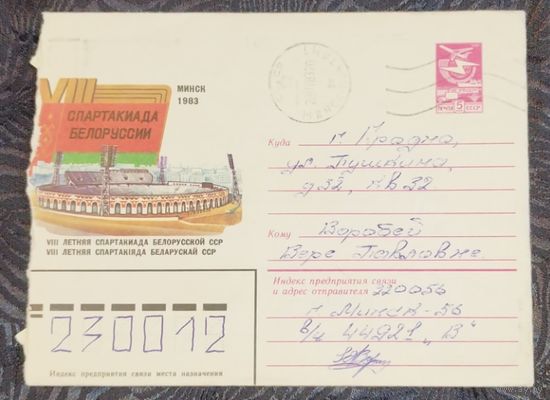 VIII
СПАРТАКИАДА
БЕЛОРУССИИ
МИНСК
1983
VIII ЛЕТНЯЯ СПАРТАКИАДА БЕЛОРУССКОЙ ССР
VIII ЛЕТНЯЯ СПАРТАКІЯДА БЕЛАРУСКАЙ ССР
230012
Индекс предприятия связи места назначения
ПОЧТА 5 СССР
Куда г. Гродно,
ул. Пушкина,
д 32, кв 32.
Кому Воробей
Вере Павловне.
Индекс предприятия связи
и адрес отправителя 220056
г. Минск-56
в/ч 44921 „В"